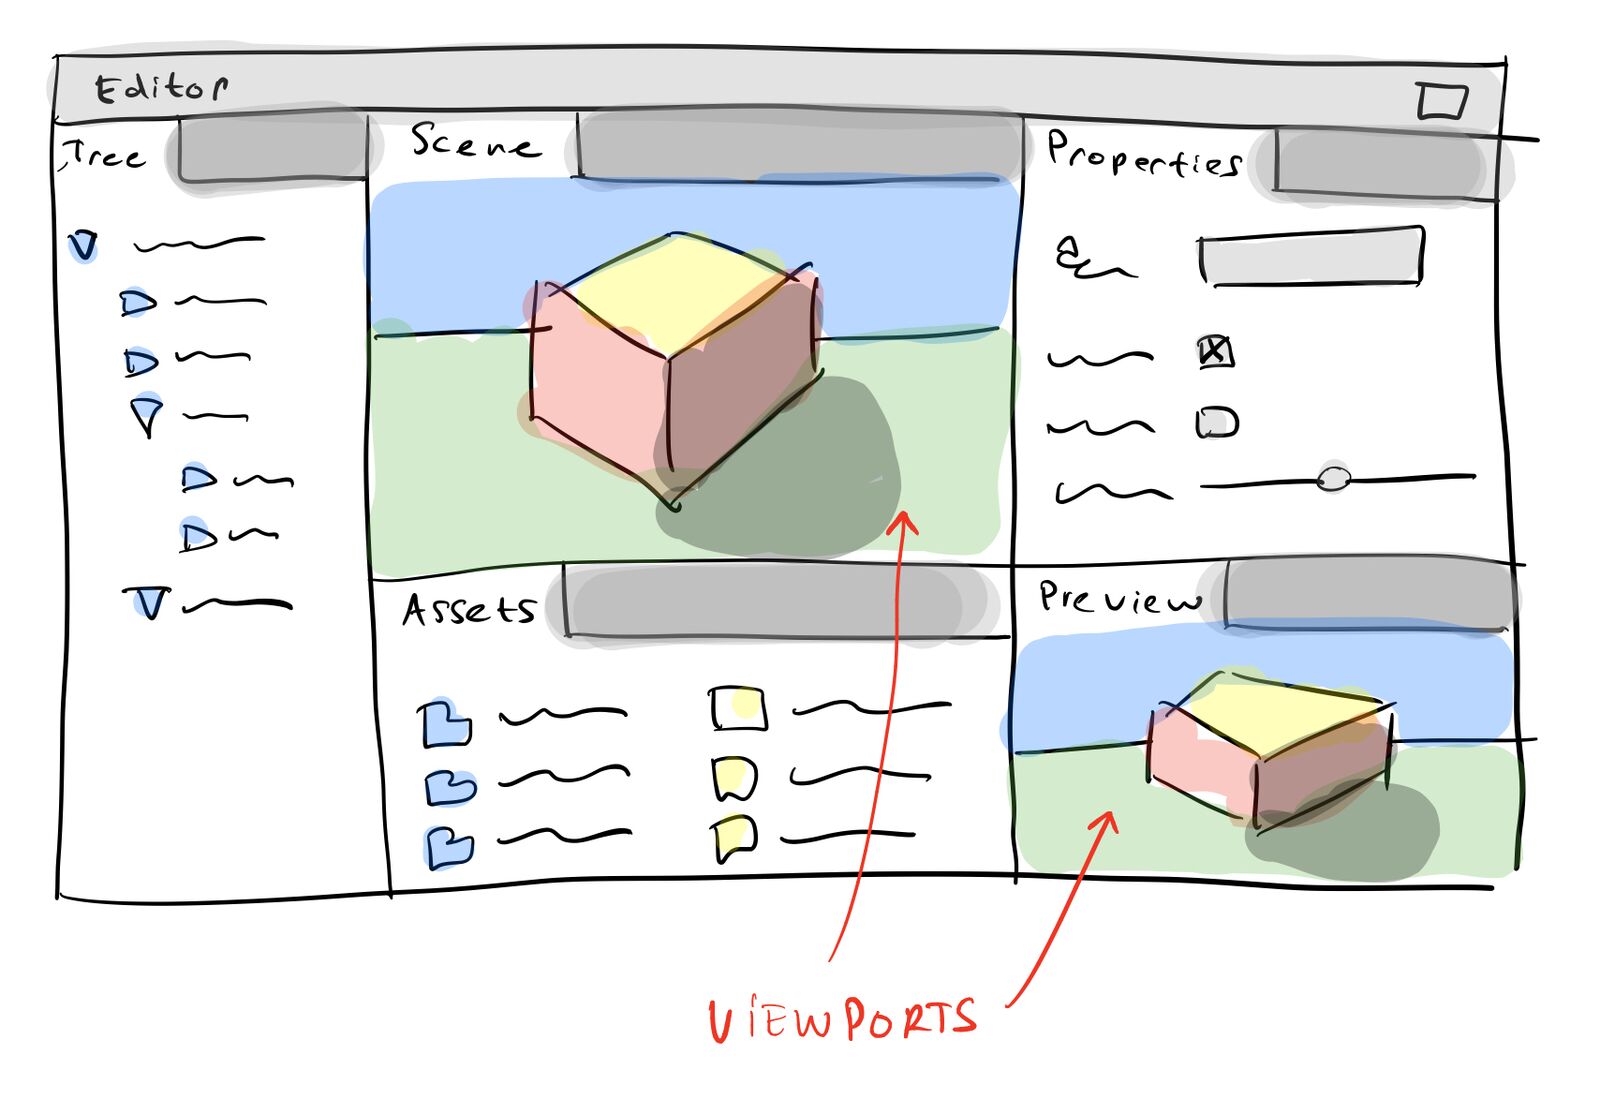 Editor
Tree
Scene
Properties
Assets
Preview
VIEWPORTS